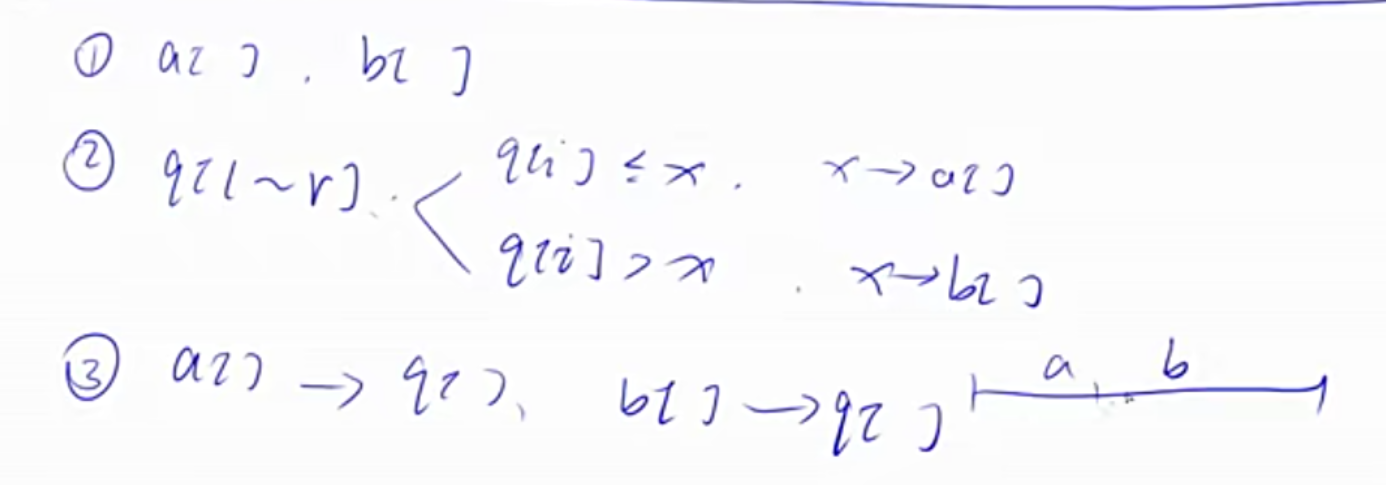 ① a[ ], b[ ]
② q[l~r] q[i] ≤ x. x→a[ ]
q[i] > x. x→b[ ]
③ a[ ] → q[ ], b[ ] → q[ ] a b